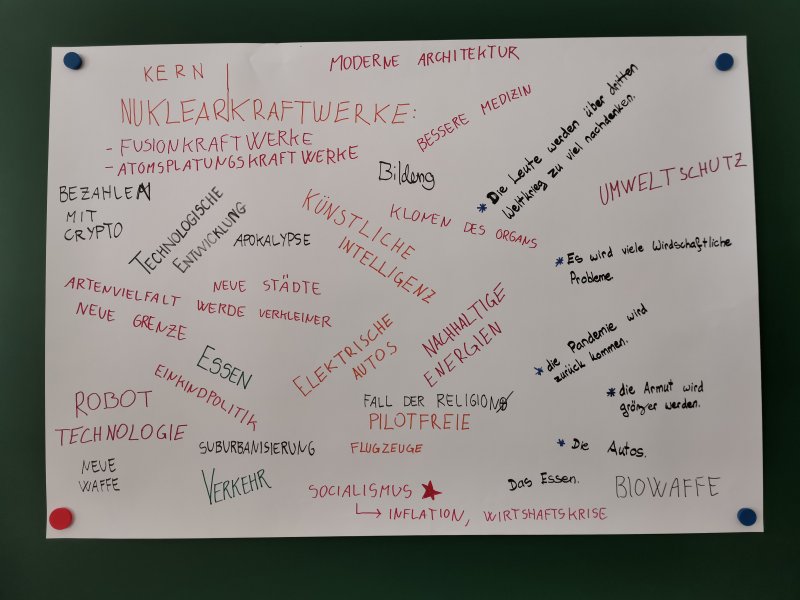 KERN
MODERNE ARCHITEKTUR
NUKLEARKRAFTWERKE:
- FUSIONKRAFTWERKE
- ATOMSPLATUNGSKRAFTWERKE
BESSERE MEDIZIN
* Die Leute werden über dritten
Weltkrieg zu viel nachdenken.
Bildeng
UMWELTSCHUTZ
BEZAHLEN
MIT
CRYPTO
TECHNOLOGISCHE
ENTWICKLUNG
APOKALYPSE
KÜNSTLICHE
INTELLIGENZ
KLONEN DES ORGANS
* Es wird viele Wirdschaftliche
Probleme.
ARTENVIELFALT WERDE VERKLEINER
NEUE STÄDTE
NEUE GRENZE
ELEKTRISCHE
AUTOS
NACHHALTIGE
ENERGIEN
* die Pandemie wird
zurück kommen.
ESSEN
EINKINDPOLITIK
ROBOT
TECHNOLOGIE
FALL DER RELIGION
PILOTFREIE
FLUGZEUGE
* die Armut wird
größer werden.
SUBURBANISIERUNG
* Die Autos.
NEUE
WAFFE
VERKEHR
SOCIALISMUS
INFLATION, WIRTSHAFTSKRISE
Das Essen.
BIOWAFFE